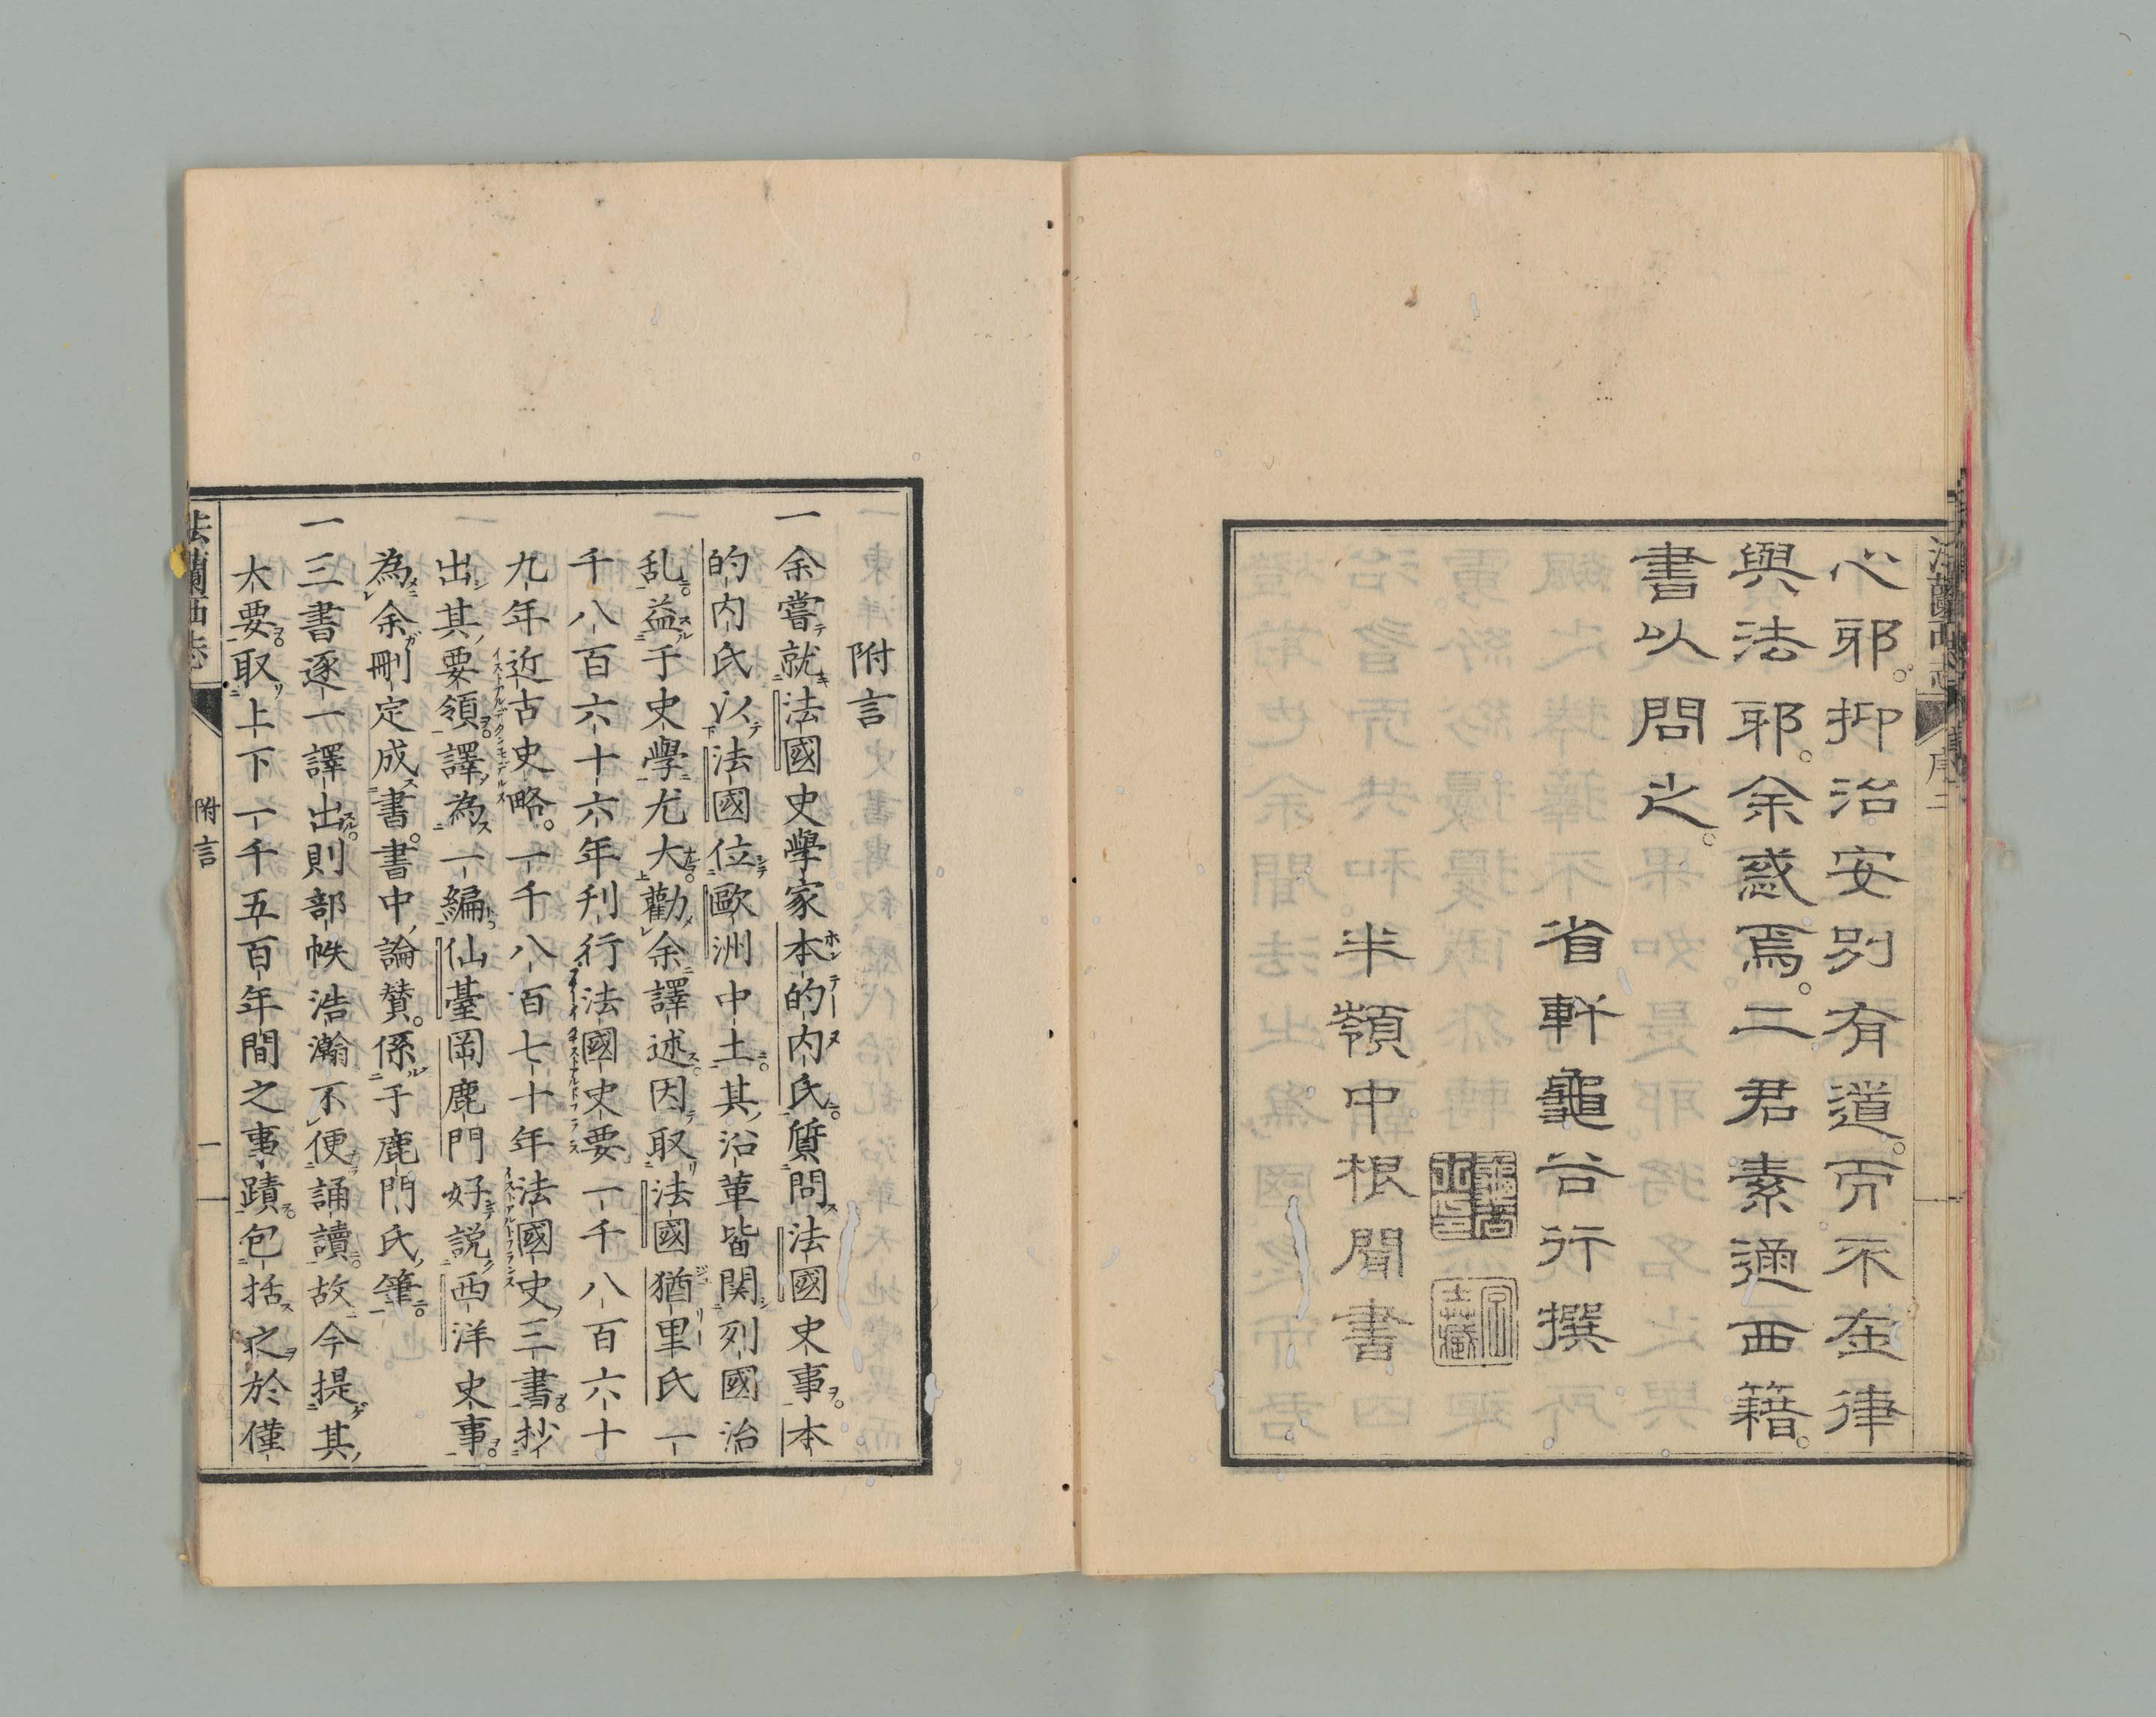 心邪。抑治安別有道。而不在律
與法邪。余惑焉。二君素通西籍。
書以問之。
省軒龜谷行撰
半嶺中根聞書
附言
一余嘗就法國史學家本的內氏。質問法國史事。本
的內氏以法國位歐洲中土。其沿革皆関列國治
乱。益于史學尤大。勸余譯述。因取法國猶里氏一
千八百六十六年刊行法國史要。一千八百六十
九年近古史略。一千八百七十年法國史三書。抄
出其要領。譯為一編。仙臺岡鹿門好説西洋史事。
為余刪定成書。書中論賛。係于鹿門氏筆。
一三書逐一譯出。則部帙浩瀚不便誦讀。故今提其
大要。取上下一千五百年間之事蹟。包括之於僅
法蘭西志
附言
一